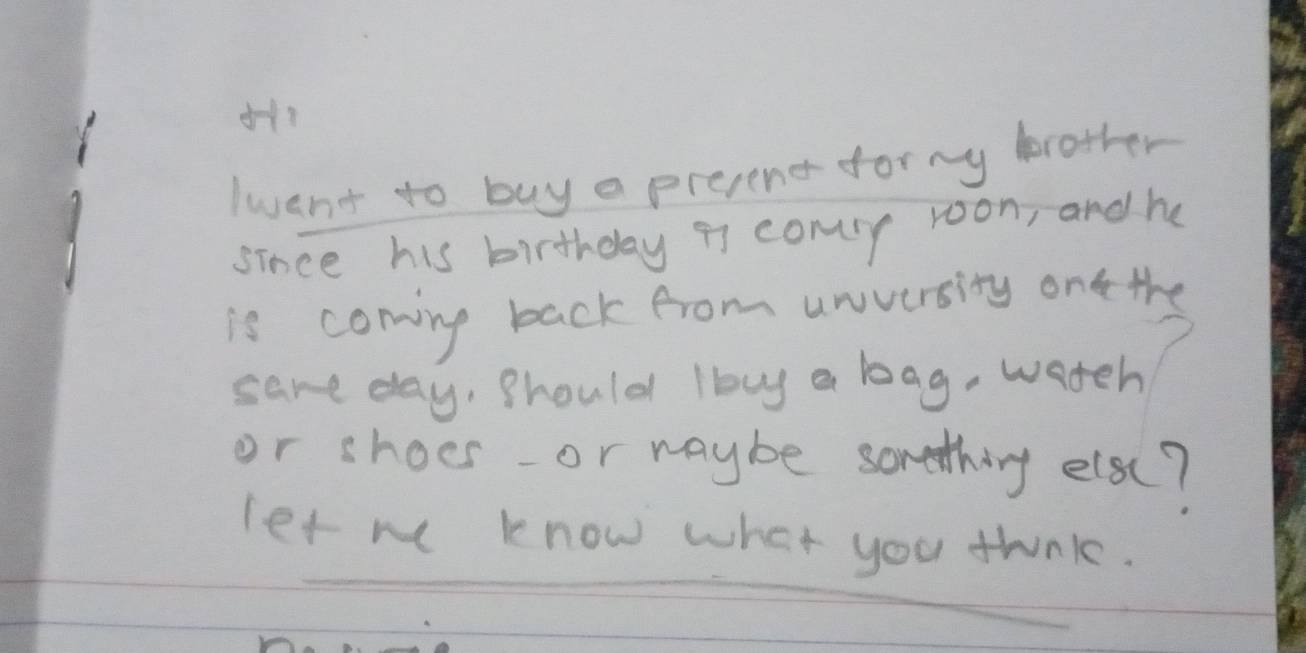 Hi
I want to buy a present for my brother
since his birthday is coming soon, and he
is coming back from university on the
same day. Should I buy a bag, watch
or shoes - or maybe something else?
let me know what you think.